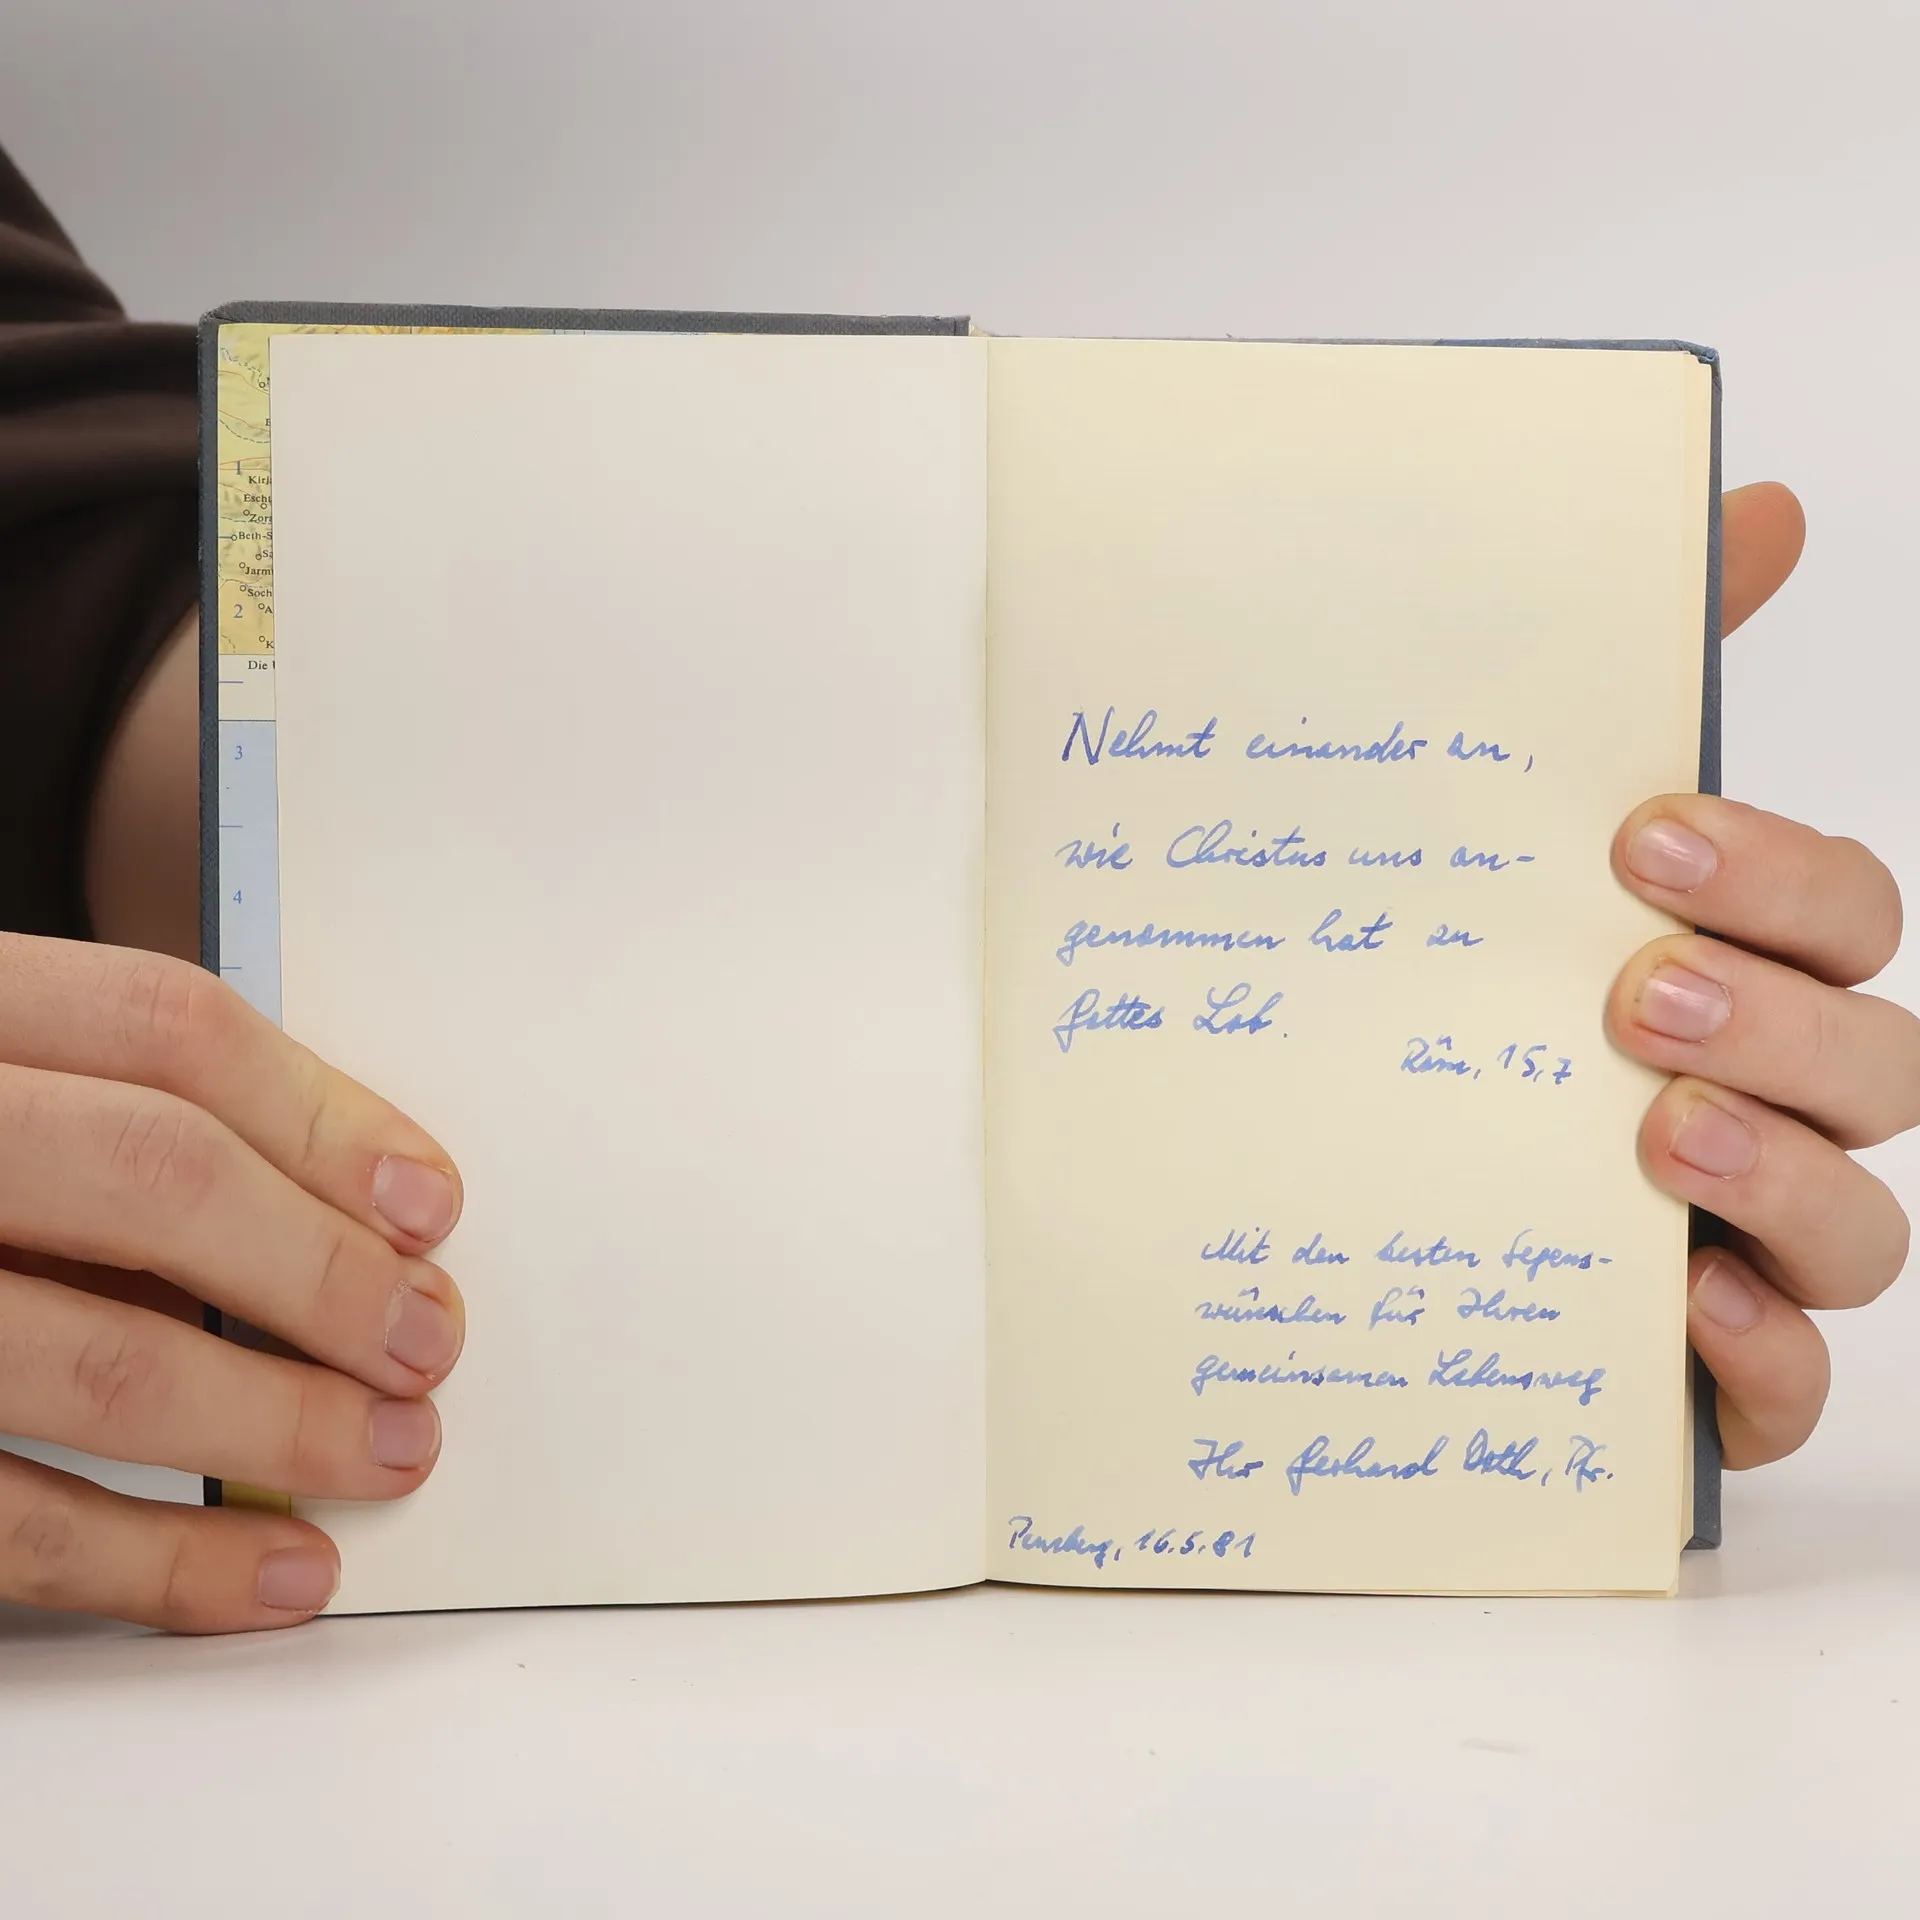 1
Kirj
Escht
Zora
Beth-S
Sa
Jarm
Soch
A
2
K
Die
3
4
Nehmt einander an,
wie Christus uns an-
genommen hat zu
Gottes Lob.
Röm, 15,7
Mit den besten Segens-
wünschen für Ihren
gemeinsamen Lebensweg
Ihr Gerhard Pfr.
Penzberg, 16.5.81